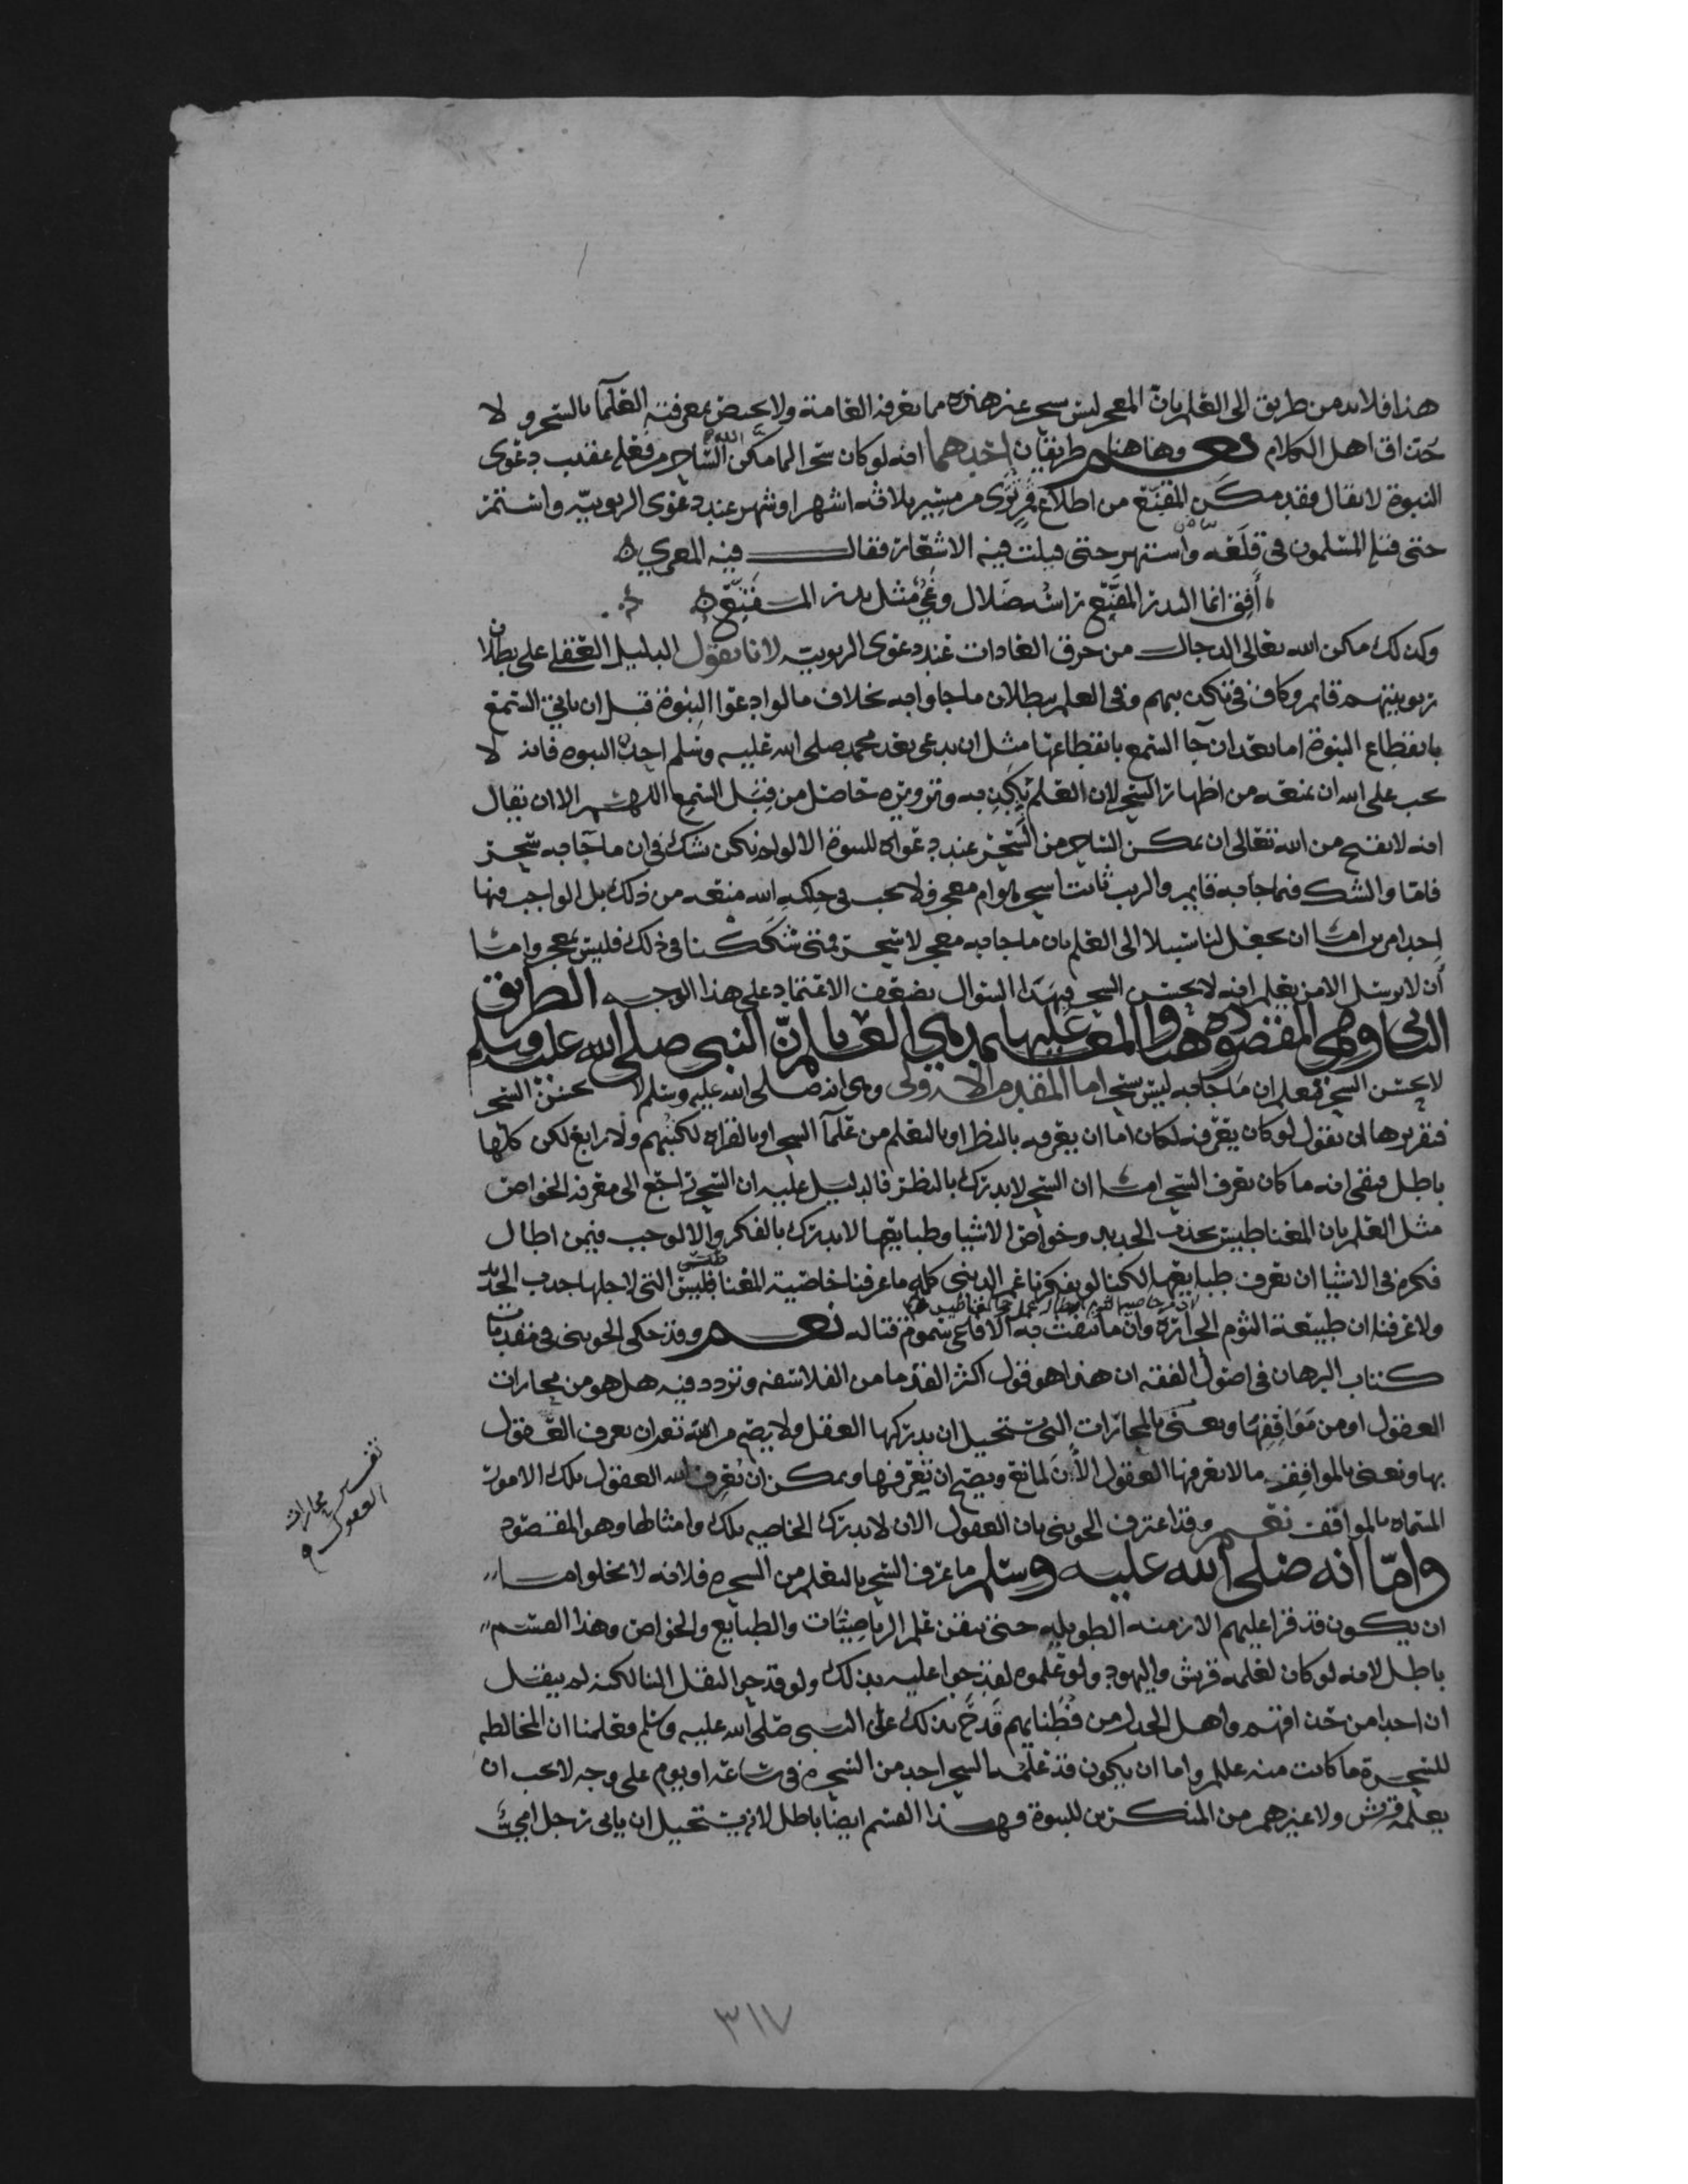 هذا فلا بد من طريق الى العلم بان المعجز ليس بسحر غير هذه مما تعرفه العامة ولا يختص بمعرفته العلما بالسحر ولا
حذاق اهل الكلام نعم وهاهنا طريقان احدهما انه لو كان سحرا لما مكن الله الساحر من فعله عقيب دعوى
النبوة لا يقال فقد مكن المقنع من اطلاع قمر يرى من مسيرة ثلاثة اشهر او شهر عند دعوى الربوبية واستمر
حتى قتله المسلمون في قلعته واشتهر حتى قيلت فيه الاشعار فقال فيه المعري
أفق انما البدر المقنع راسه ضلال وغي مثل بدر المقنع
وكذلك مكن الله تعالى الدجال من خرق العادات عند دعوى الربوبية لانا نقول الدليل العقلي على بطلان
ربوبيتهم قائم وكاف في تكذيبهم وفي العلم ببطلان ما جاوا به بخلاف ما لو ادعوا النبوة قبل ان ياتي السمع
بانقطاع النبوة اما بعد ان جا السمع بانقطاعها مثل ان يدعي بعد محمد صلى الله عليه وسلم احد النبوه فانه لا
يجب على الله ان يمنعه من اظهار السحر لان العلم بكذبه وتزويره حاصل من قبل السمع اللهم الا ان يقال
انه لا يقبح من الله تعالى ان يمكن الساحر من السحر عند دعواه للنبوة الا لو لم يكن نشك في ان ما جا به سحر
فاما والشك فيما جا به قايم والريب ثابت اسحر هو ام معجز فلا يجب في حكمه الله منعه من ذلك بل الواجب فيها
احد امرين اما ان يجعل لنا سبيلا الى العلم بان ما جا به معجز لا سحر فمتى شككنا في ذلك فليس بمعجز واما
أن لا يرسل الا من يعلم انه لا يحسن السحر فبهذا السوال يضعف الاعتماد على هذا الوجه الطريق
الثاني وهي المقصوده هنا والمعول عليها ... ان النبي صلى الله عليه وسلم
لا يحسن السحر فنعلم ان ما جا به ليس بسحر اما المقدمه الاولى وهى انه صلى الله عليه وسلم لا يحسن السحر
فتقريرها ان نقول لو كان يعرفه لكان اما ان يعرفه بالنظر او بالتعلم من علمآ السحر او بالقراه لكتبهم ولا رابع لكن كلها
باطل فبقي انه ما كان يعرف السحر اما ان السحر لا يدرك بالنظر فالدليل عليه ان السحر راجع الى معرفه الخواص
مثل العلم بان المغناطيس يجذب الحديد وخواص الاشيا وطبايعها لا يدرك بالفكر والا لوجب فيمن اطال
فكره في الاشيا ان يعرف طبايعها لكنا لو بفكرنا عمر الدنيى كله ما عرفنا خاصية المغناطيس التي لاجلها جذب الحديد
ولا عرفنا ان طبيعة الثوم الحراره وان ما تنفث به الافاعي سموم قتاله نعم وقد حكى الجويني في مقدمات
كتاب البرهان في اصول الفقه ان هذا هو قول اكثر القدما من الفلاسفه وتردد فيه هل هو من محارات
العقول او من مواقفها ونعنى بالمحارات التي يستحيل ان يدركها العقل ولا يصح من الله تعالى ان يعرف العقول
بها ونعنى بالمواقف ما لا يعرفها العقول الأن لمانع ويصح ان تعرفها ويمكن ان يعرف الله العقول تلك الامور
المسماه بالمواقف نعم وقد اعترف الجويني بان العقول الان لا يدرك الخاصيه تلك وامثالها وهو المقصود
واما انه صلى الله عليه وسلم ما عرف السحر بالتعلم من السحره فلانه لا يخلوا اما
ان يكون قد قرا عليهم الازمنه الطويله حتى يتقن علم الرياضيات والطبايع والخواص وهذا القسم
باطل لانه لو كان لعلمه قريش واليهود ولو علموه لقدحوا عليه بذلك ولو قدحوا لنقل الينا لكنه لم ينقل
ان احدا من حذاقهم واهل الجدل من فطنايهم قدح بذلك على النبي صلى الله عليه وسلم فعلمنا ان المخالطه
للسحرة ما كانت منه عليلم واما ان يكون قد علمه السحر احد من السحره في ساعة او يوم على وجه لا يجب ان
يعلمه قريش ولا غيرهم من المنكرين للنبوة فهذا القسم ايضا باطل لانه يستحيل ان ياتي رجل امي
تفسير محارات
العقول
٣١٧